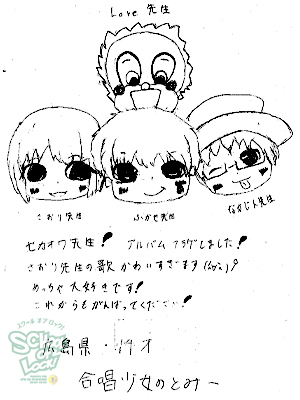 Love 先生
さおり先生
ふかせ先生
なかじん先生
セカオワ先生!
アルバム フラゲしました!
さおり先生の歌 かわいすぎます
めっちゃ大好きです!
これからもがんばってください!
スクール オブ ロック!
SCHOOL OF LOCK!
広島県・14才
合唱少女のとみー